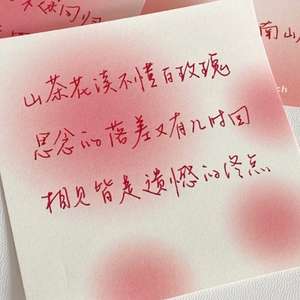 南山
山茶花读不懂白玫瑰
思念的落差又有几时回
相见皆是遗憾的终点